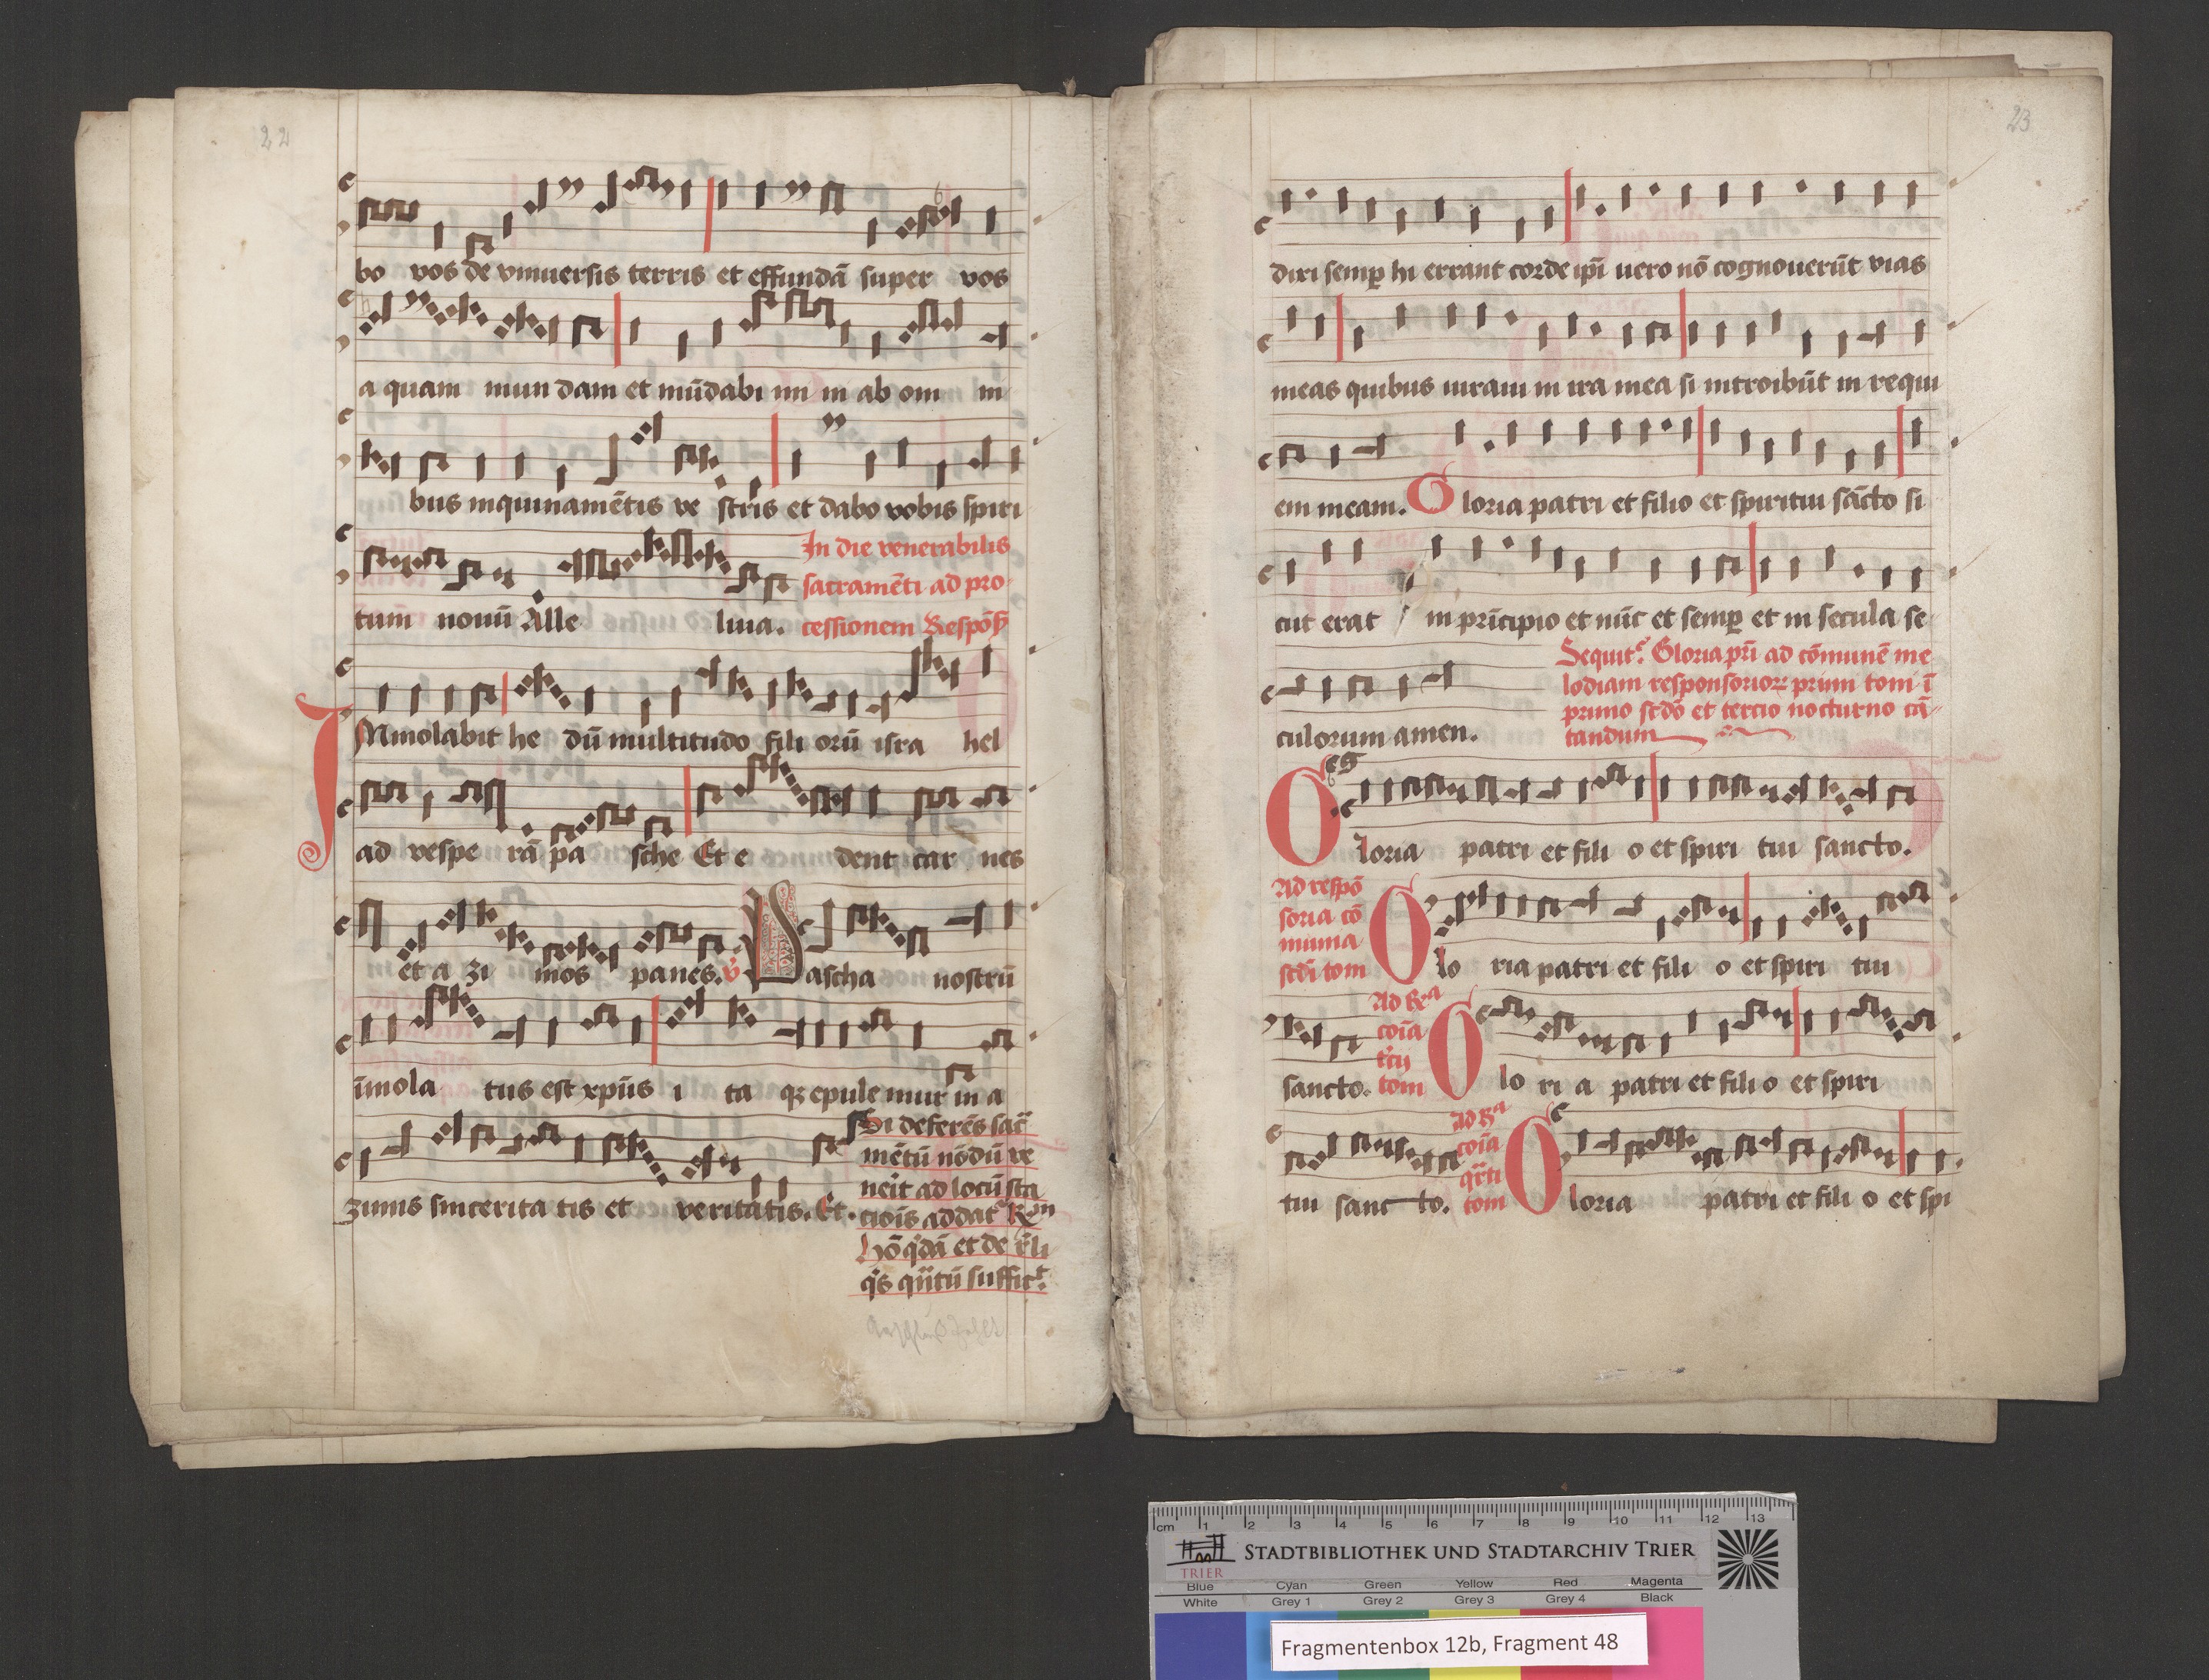 22
bo vos de vniuersis terris et effundā super vos
a quam mun dam et mūdabi mi ni ab om ni
bus inquinamētis ve stris et dabo vobis spiri
tum nouū Alle luia.
In die venerabilis
sacramēti ad pro
cessionem Respōs
IMmolabit he dū multitudo fili orū isra hel
ad vespe rā pa sche Et e dent car nes
et a zi mos panes. v̄ Pascha nostrū
īmola tus est xp̄us i ta qꝫ epule mur in a
zimis sincerita tis et veritatis. Et.
Si deferēs sac̄
mētū nōdū ve
neīt ad locū sta
ciōis addat
hō q̄dā et de
q̄s
23
dixi semꝑ hi errant corde ip̄i uero nō cognouerūt vias
meas quibus iuraui in ira mea si introibūt in requi
em meam. Gloria patri et filio et spiritui sācto si
cut erat in prīcipio et nūc et semꝑ et in secula se
culorum amen.
Sequit͛ Gloria pr̄i ad cōmunē me
lodiam responsorioꝝ primi toni ī
primo sc̄dō et tercio nocturno cā
tandum
Gloria patri et fili o et spiri tui sancto.
Ad respō
soria cō
munia
sc̄di toni
Glo ria patri et fili o et spiri tui
sancto.
Ad Rᵃ
coīa
t̄cij
toni
Glo ri a patri et fili o et spiri
tui sanc to.
ad Rᵃ
coīa
q̄rti
toni
Gloria patri et fili o et spi
cm 1 2 3 4 5 6 7 8 9 10 11 12 13
TRIER
STADTBIBLIOTHEK UND STADTARCHIV TRIER
Blue Cyan Green Yellow Red Magenta
White Grey 1 Grey 2 Grey 3 Grey 4 Black
Fragmentenbox 12b, Fragment 48